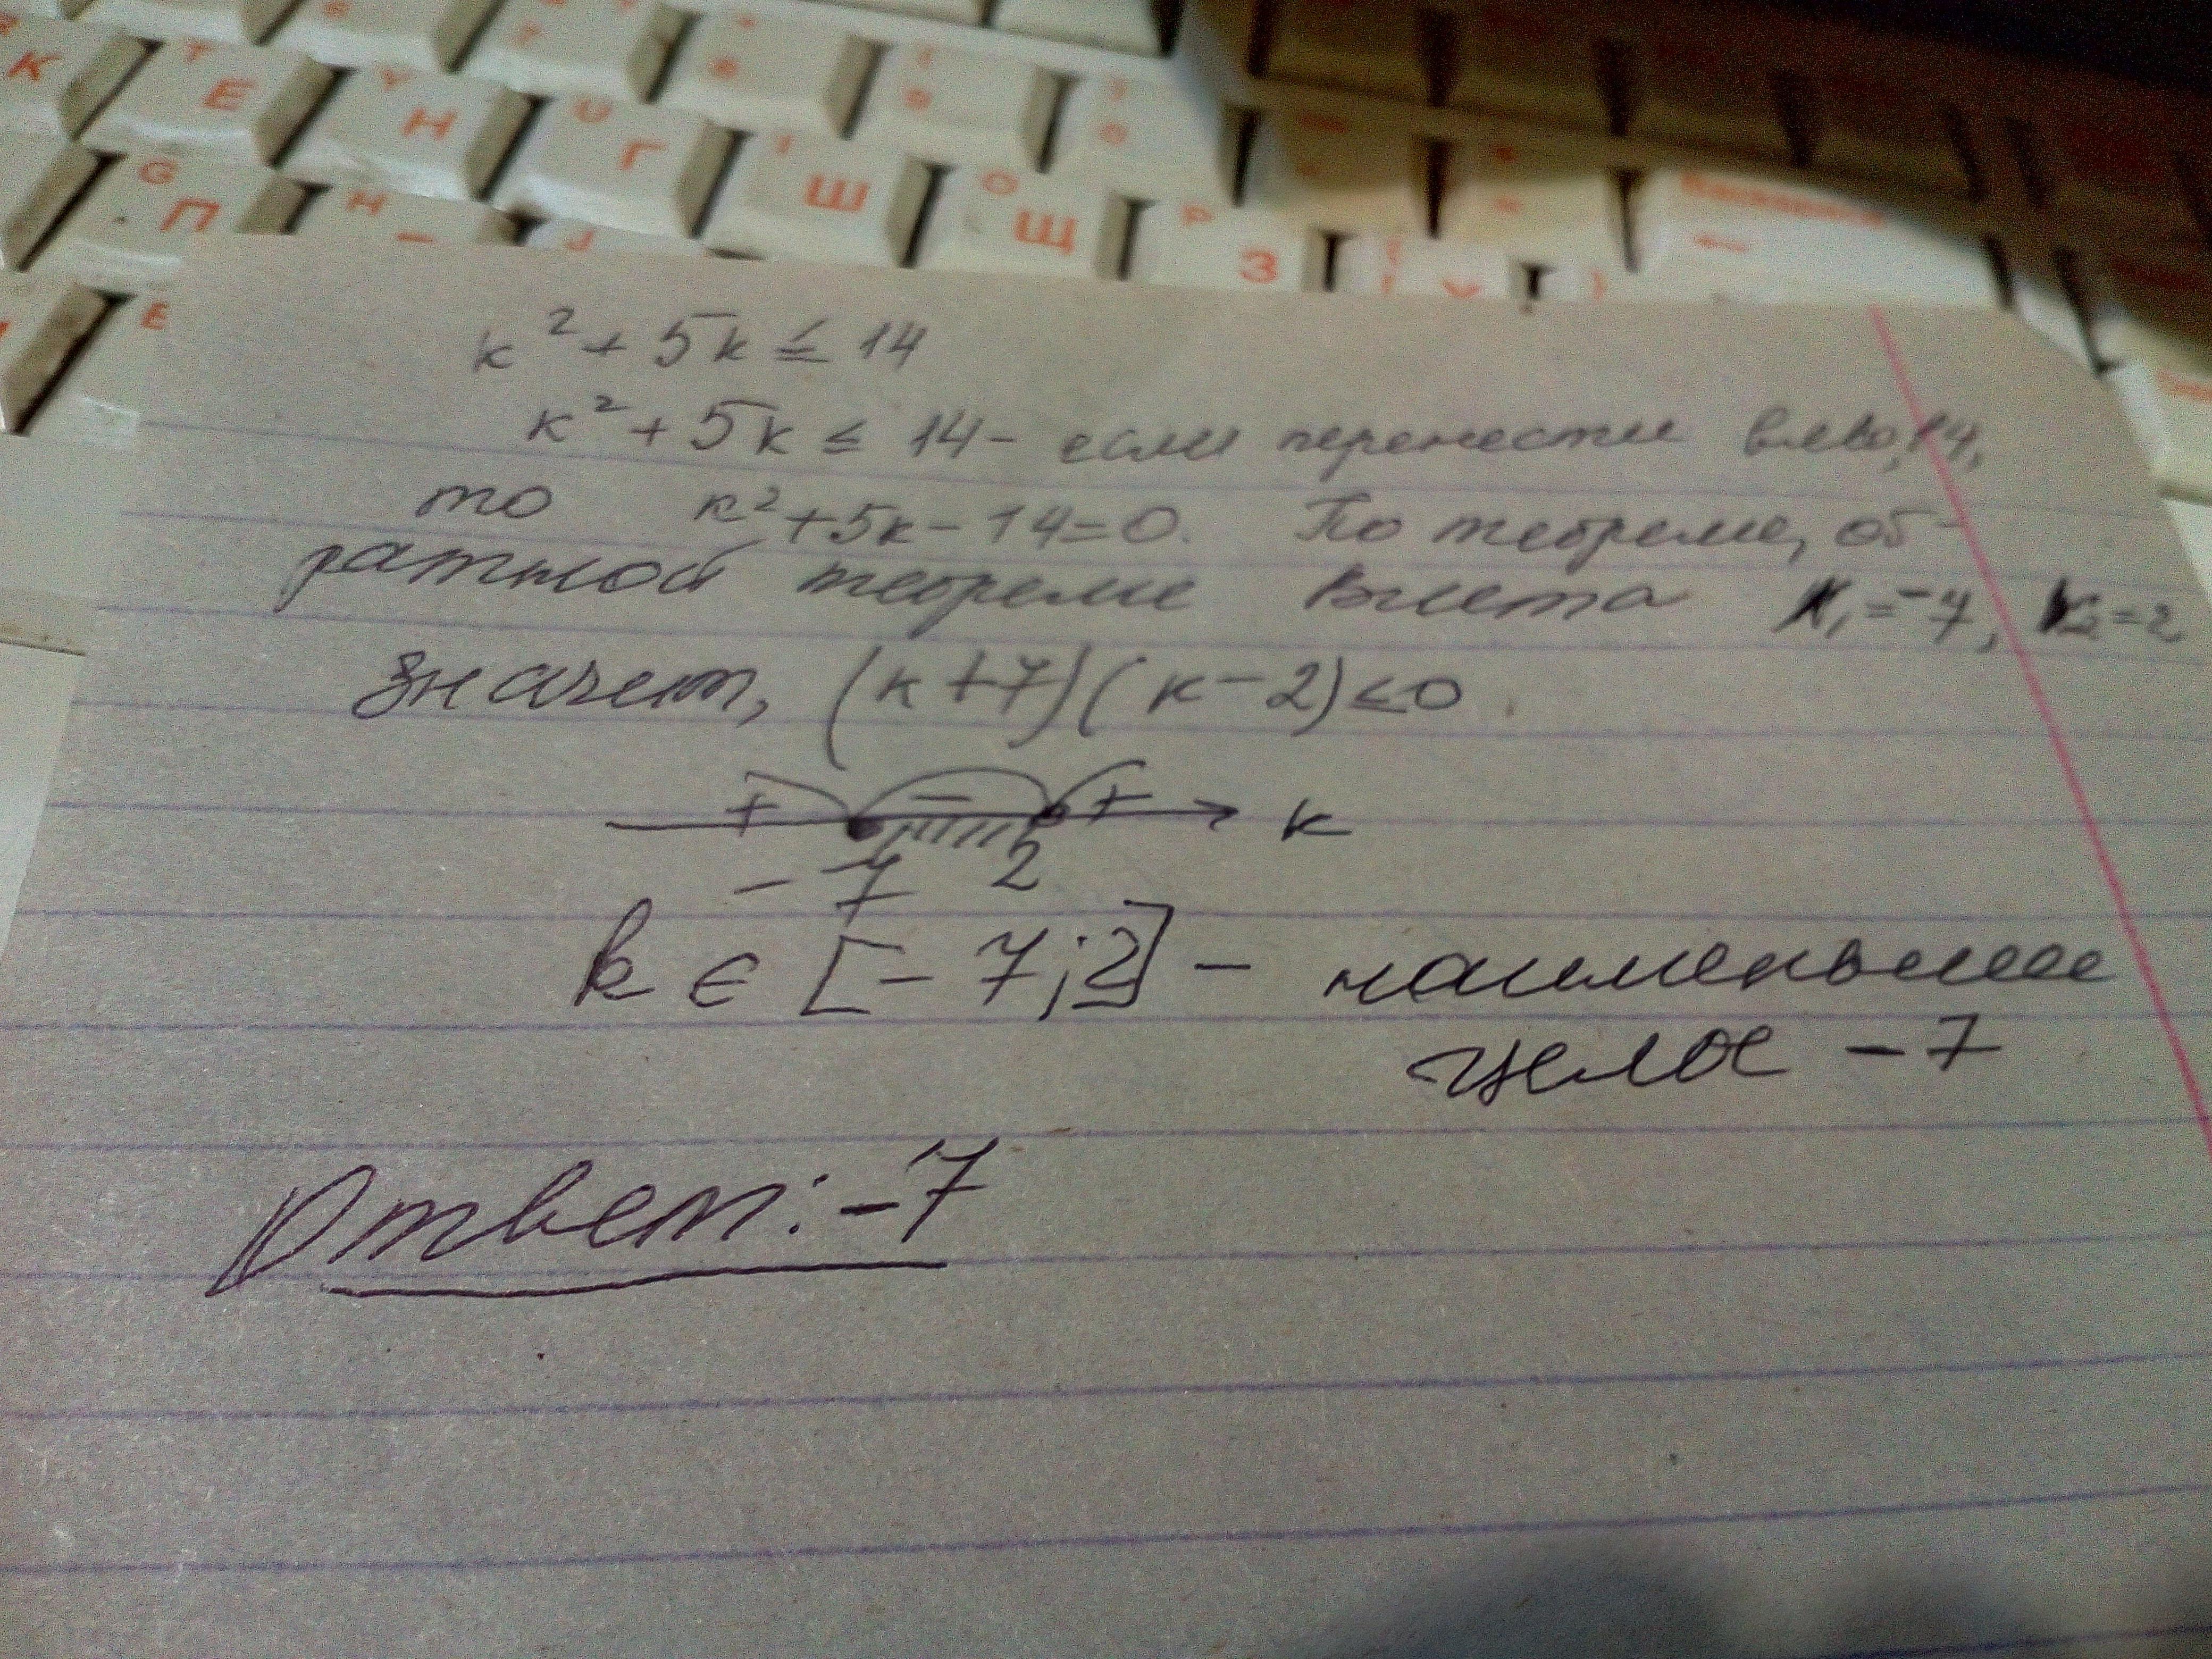 К
Т
Е
Y
Н
U
Г
I
Ш
O
Щ
P
З
G
П
H
J
k² + 5k ≤ 14
k² + 5k ≤ 14 - если перенести влево 14,
то k² + 5k - 14 = 0. По теореме, об-
ратной теореме Виета k₁ = -7, k₂ = 2
значит, (k + 7)(k - 2) ≤ 0.
+ - + k
-7 2
k ∈ [-7; 2] - наименьшее
целое -7
Ответ: -7